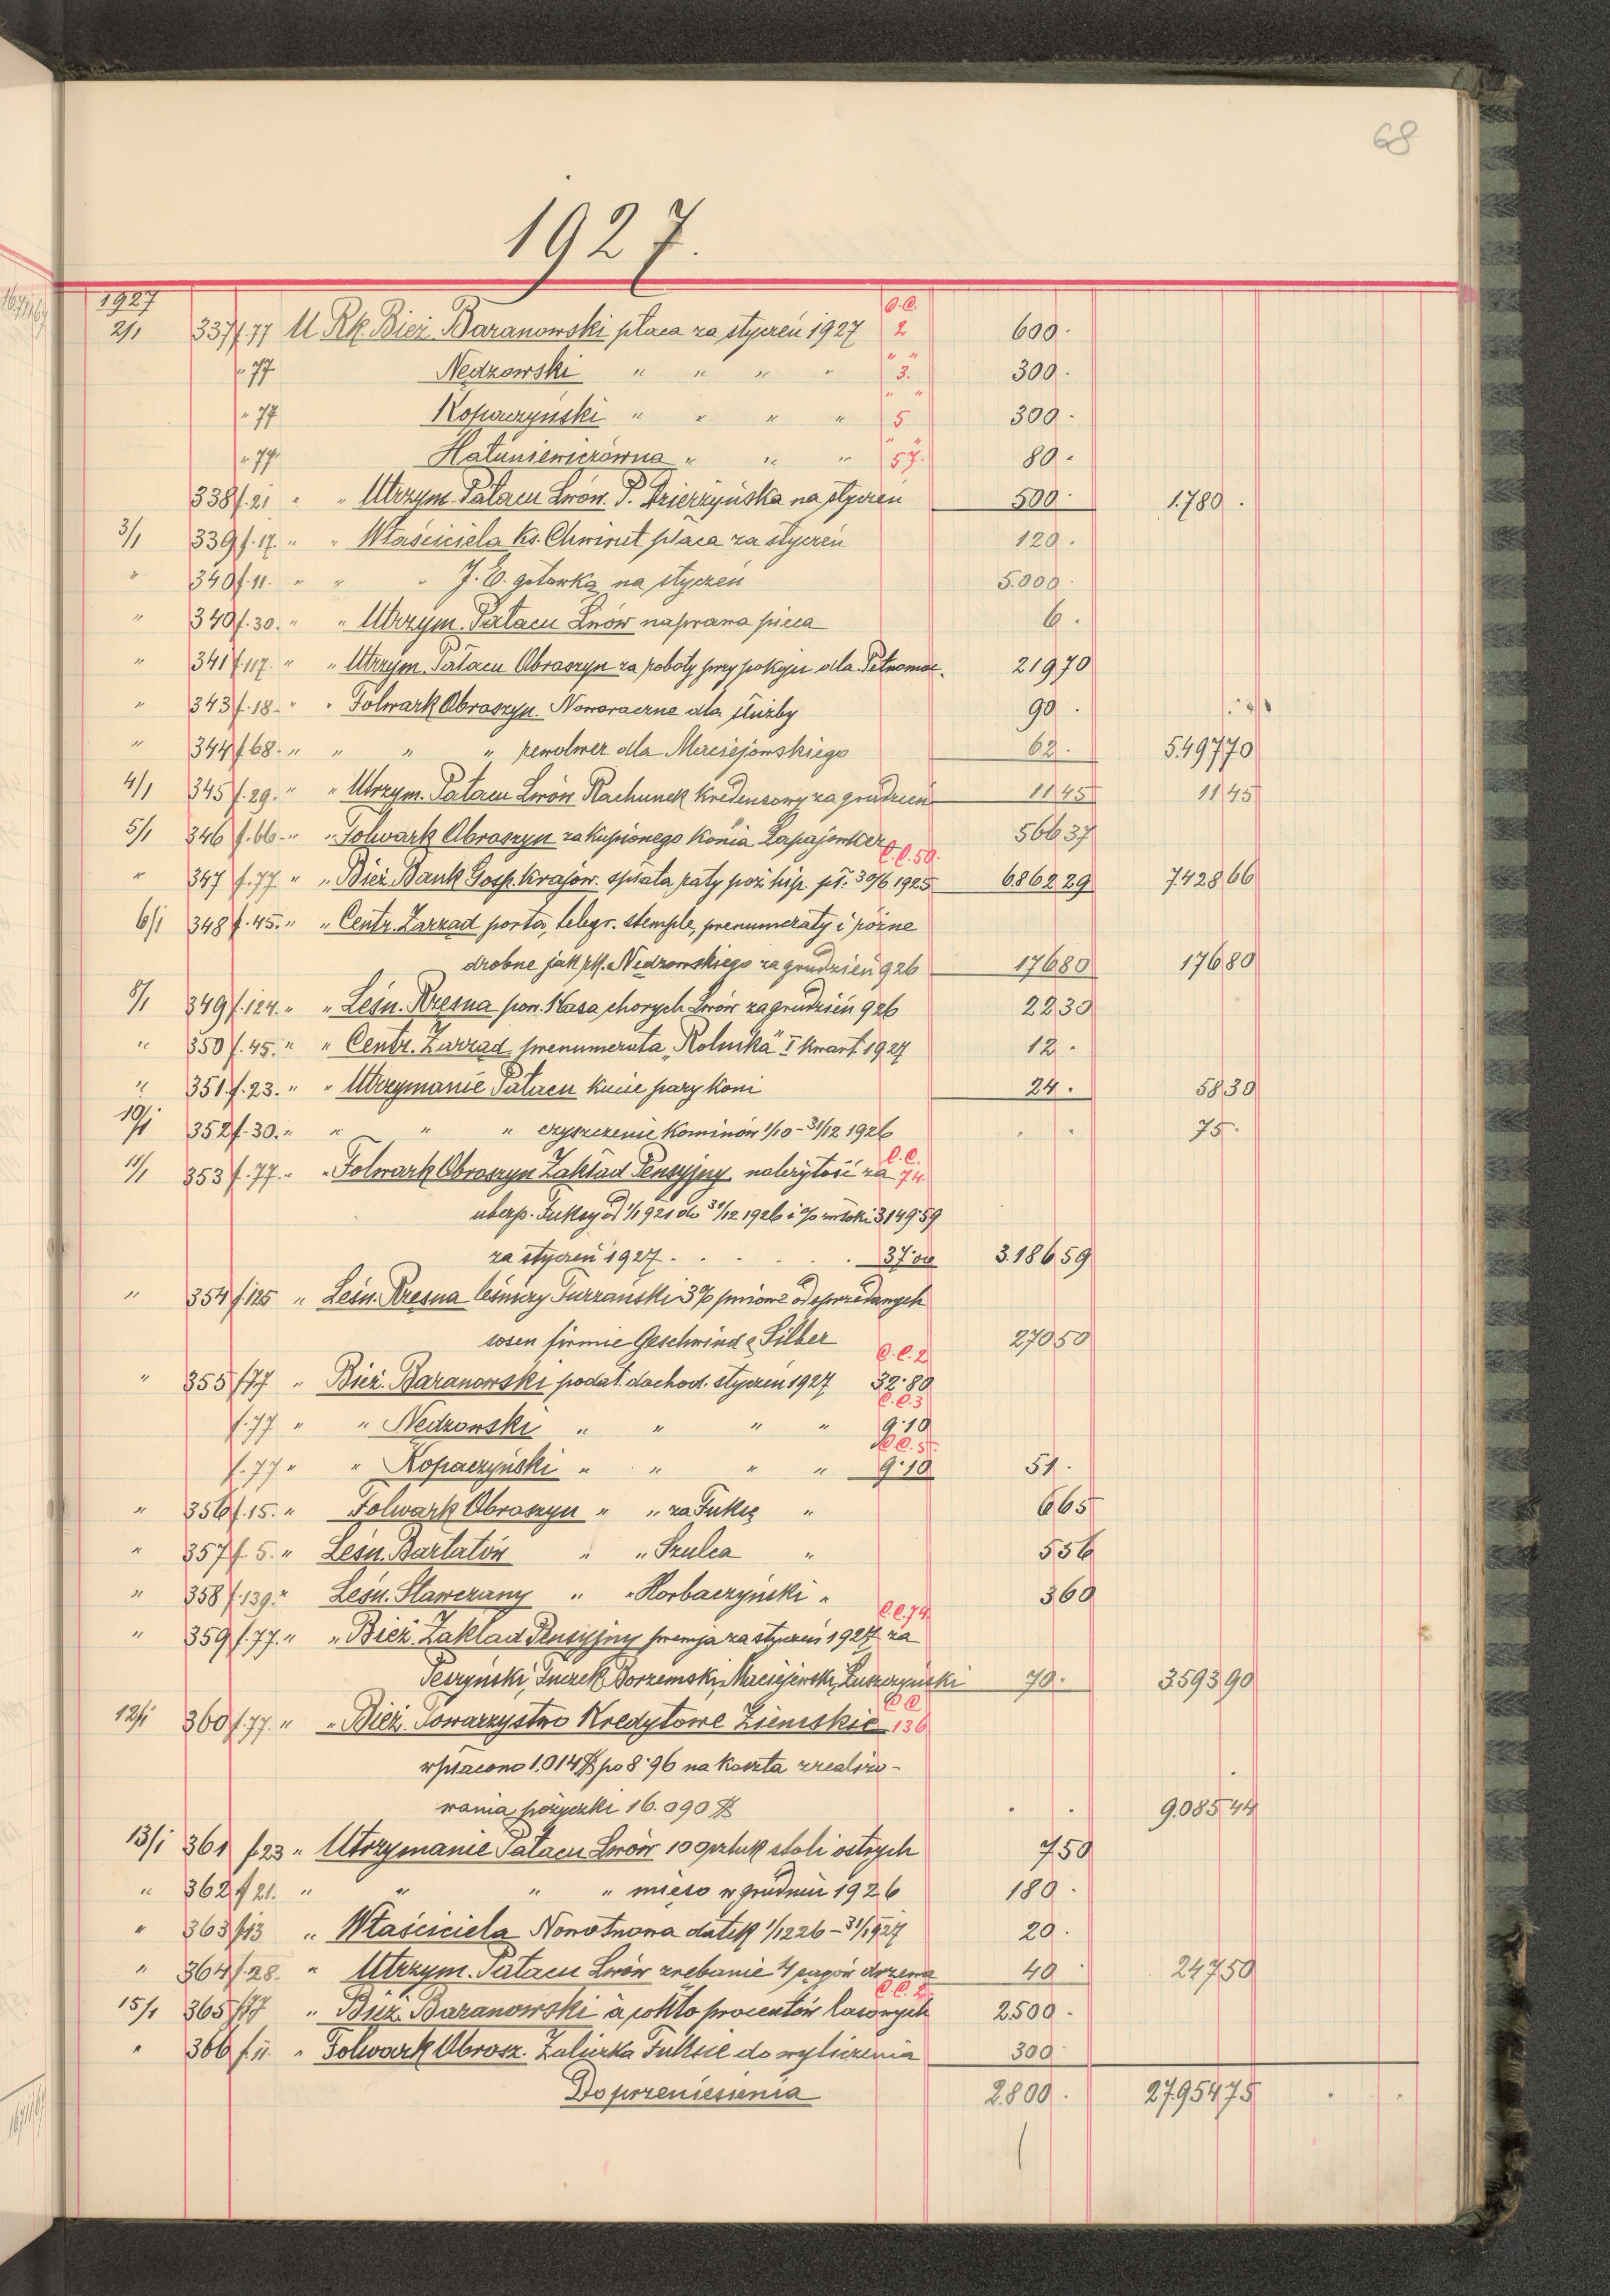 68
1927.
1927 C.C.
2/1 337 f.77 U Rk. Bież. Baranowski płaca za styczeń 1927 2 600.
" 77 Nędzowski " " " " " " 3. 300.
" 77 Kopaczyński " " " " " " 5 300.
" 77 Hatuniewiczówna " " " " " 57. 80.
338 f.21 " " Utrzym. Pałacu Lwów. P. Dzierżyńska na styczeń 500. 1.780.
3/1 339 f.17. " " Właściciela Ks. Chwirut płaca za styczeń 120.
" 340 f.11. " " " J. E. gotówką na styczeń 5.000.
" 340 f.30. " " Utrzym. Pałacu Lwów naprawa pieca 6.
" 341 f.117. " " Utrzym. Pałacu Obroszyn za roboty przy pokoju dla Pełnomoc. 219 70
" 343 f.18. " " Folwark Obroszyn. Noworoczne dla służby 90.
" 344 f.68. " " " " rewolwer dla Maciejowskiego 62. 5.497 70
4/1 345 f.29. " " Utrzym. Pałacu Lwów Rachunek Kredensowy za grudzień 11 45 11 45
5/1 346 f.66. " " Folwark Obroszyn zakupionego Konia 566 37
C.C.50.
" 347 f.77 " " Bież. Bank Gosp. Krajow. spłata raty poż. hip. pł. 30/6 1925 6.862 29 7.428 66
6/1 348 f.45. " " Centr. Zarząd porto, telegr. stemple, prenumeraty i różne
drobne jak Nędzowskiego za grudzień 926 176 80 176 80
8/1 349 f.124. " " Leśn. Rzęsna pow. Kasa chorych Lwów za grudzień 926 22 30
" 350 f.45. " " Centr. Zarząd. prenumerata "Rolnika" I kwart. 1927 12.
" 351 f.23. " " Utrzymanie Pałacu kucie pary koni 24. 58 30
10/1 352 f.30. " " " " czyszczenie kominów 1/10 - 31/12 1926 . . 75.
C.C.
11/1 353 f.77. " " Folwark Obroszyn Zakład Pensyjny należytość za 74.
ubezp. Fuksy od 1/1 921 do 31/12 1926 i % zwłoki 3149.59
za styczeń 1927 . . . . . 37.00 3.186 59
" 354 f.125 " Leśn. Rzęsna leśniczy Turzański 3% pniowe od sprzedanych
sosen firmie Geschwind & Silber 270 50
C.C.2
" 355 f.77 " Bież. Baranowski podat. dochod. styczeń 1927 32.80
C.C.3
f.77 " " Nędzowski " " " " 9.10
C.C.5.
f.77 " " Kopaczyński " " " " 9.10 51.
" 356 f.15. " Folwark Obroszyn " " za Fuksę " 6 65
" 357 f.5. " Leśn. Bartatów " " Szulca " 5 56
" 358 f.139. " Leśn. Stawczany " " Horbaczyński " 3 60
C.C.74
" 359 f.77. " " Bież. Zakład Pensyjny premja za styczeń 1927 za
Peszyński, Juczek, Borzemski, Maciejowski, Łuszczyński 70. 3.593 90
C.C.
12/1 360 f.77. " " Bież. Towarzystwo Kredytowe Ziemskie 136
wpłacono 1.014 $ po 8.96 na koszta zrealizo-
wania pożyczki 16.090 $ . . 9.085 44
13/1 361 f.23 " Utrzymanie Pałacu Lwów 100 sztuk stoli ostrych 7 50
" 362 f.21. " " " " mięso w grudniu 1926 180.
" 363 f.13 " Właściciela Nowotnowa datek 1/12 26 - 31/1 927 20.
" 364 f.28. " Utrzym. Pałacu Lwów zrębanie 4 sągów drzewa 40. 247 50
C.C.2
15/1 365 f.77 " Bież. Baranowski à conto procentów lasowych 2.500.
" 366 f.11. " Folwark Obrosz. Zaliczka Fuksie do wyliczenia 300.
Do przeniesienia 2.800. 27.954 75 . .